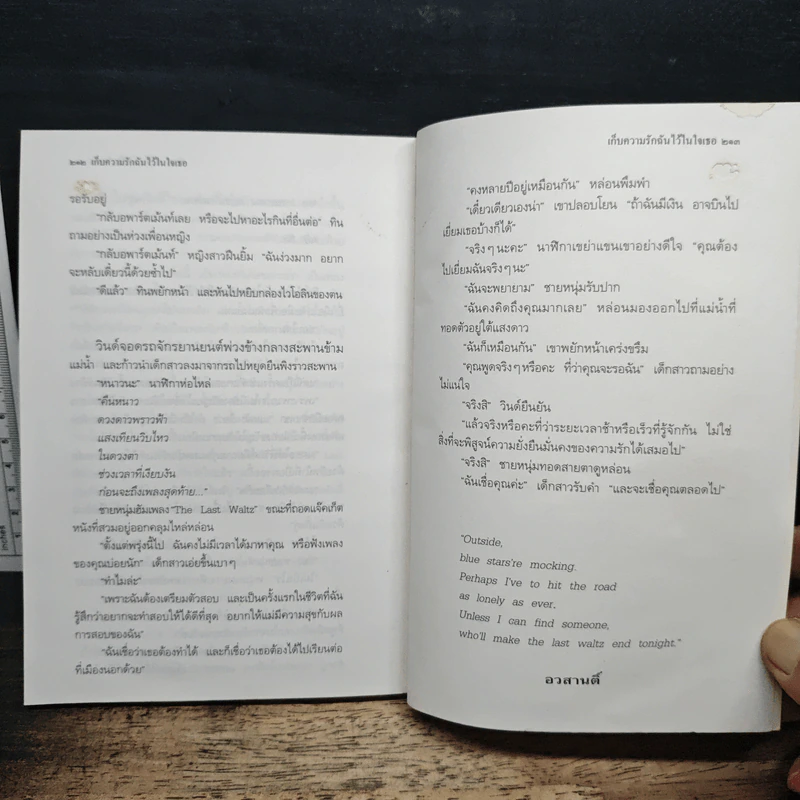 ๒๑๒ เก็บความรักฉันไว้ในใจเธอ
รอรับอยู่
"กลับอพาร์ตเม้นท์เลย หรือจะไปหาอะไรกินที่อื่นต่อ" ทิน
ถามอย่างเป็นห่วงเพื่อนหญิง
"กลับอพาร์ตเม้นท์" หญิงสาวฝืนยิ้ม "ฉันง่วงมาก อยาก
จะหลับเดี๋ยวนี้ด้วยซ้ำไป"
"ดีแล้ว" ทินพยักหน้า และหันไปหยิบกล่องไวโอลินของตน
วินด์จอดรถจักรยานยนต์พ่วงข้างกลางสะพานข้าม
แม่น้ำ และก้าวนำเด็กสาวลงมาจากรถไปหยุดยืนพิงราวสะพาน
"หนาวนะ" นาฬิกาห่อไหล่
"คืนหนาว
ดวงดาวพราวฟ้า
แสงเทียนวิบไหว
ในดวงตา
ช่วงเวลาที่เงียบงัน
ก่อนจะถึงเพลงสุดท้าย..."
ชายหนุ่มฮัมเพลง "The Last Waltz" ขณะที่ถอดแจ๊คเก็ต
หนังที่สวมอยู่ออกคลุมไหล่หล่อน
"ตั้งแต่พรุ่งนี้ไป ฉันคงไม่มีเวลาได้มาหาคุณ หรือฟังเพลง
ของคุณบ่อยนัก" เด็กสาวเอ่ยขึ้นเบาๆ
"ทำไมล่ะ"
"เพราะฉันต้องเตรียมตัวสอบ และเป็นครั้งแรกในชีวิตที่ฉัน
รู้สึกว่าอยากจะทำสอบให้ได้ดีที่สุด อยากให้แม่มีความสุขกับผล
การสอบของฉัน"
"ฉันเชื่อว่าเธอต้องทำได้ และก็เชื่อว่าเธอต้องได้ไปเรียนต่อ
ที่เมืองนอกด้วย"
เก็บความรักฉันไว้ในใจเธอ ๒๑๓
"คงหลายปีอยู่เหมือนกัน" หล่อนพึมพำ
"เดี๋ยวเดียวเองน่า" เขาปลอบโยน "ถ้าฉันมีเงิน อาจบินไป
เยี่ยมเธอบ้างก็ได้"
"จริงๆ นะคะ" นาฬิกาเขย่าแขนเขาอย่างดีใจ "คุณต้อง
ไปเยี่ยมฉันจริงๆ นะ"
"ฉันจะพยายาม" ชายหนุ่มรับปาก
"ฉันคงคิดถึงคุณมากเลย" หล่อนมองออกไปที่แม่น้ำที่
ทอดตัวอยู่ใต้แสงดาว
"ฉันก็เหมือนกัน" เขาพยักหน้าเคร่งขรึม
"คุณพูดจริงๆ หรือคะ ที่ว่าคุณจะรอฉัน" เด็กสาวถามอย่าง
ไม่แน่ใจ
"จริงสิ" วินด์ยืนยัน
"แล้วจริงหรือคะที่ว่าระยะเวลาช้าหรือเร็วที่รู้จักกัน ไม่ใช่
สิ่งที่จะพิสูจน์ความยั่งยืนมั่นคงของความรักได้เสมอไป"
"จริงสิ" ชายหนุ่มทอดสายตาดูหล่อน
"ฉันเชื่อคุณค่ะ" เด็กสาวรับคำ "และจะเชื่อคุณตลอดไป"
"Outside,
blue stars're mocking.
Perhaps I've to hit the road
as lonely as ever.
Unless I can find someone,
who'll make the last waltz end tonight."
อวสานติ์
inches